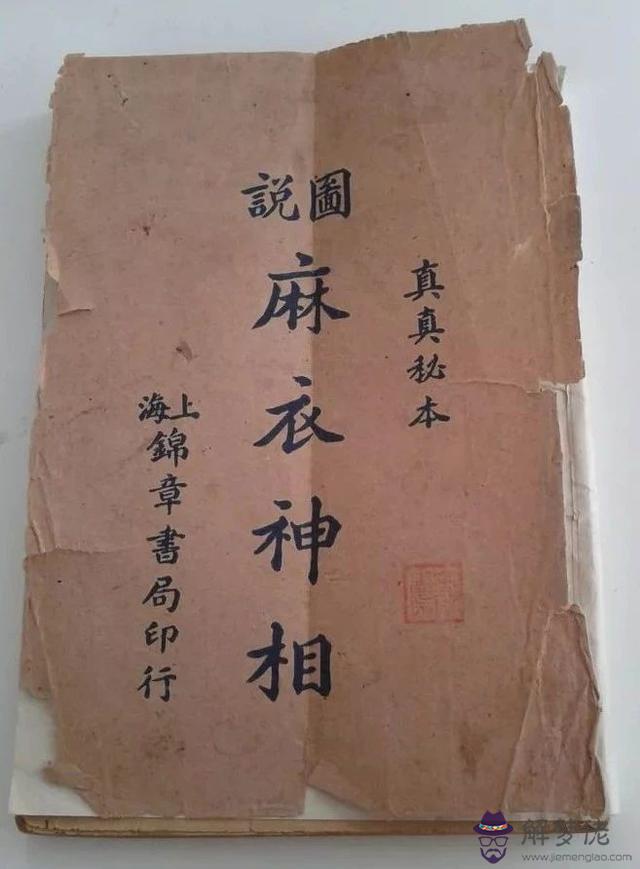 真真秘本
圖說
麻衣神相
上海
錦章書局印行
解梦佬
www.jiemenglao.com